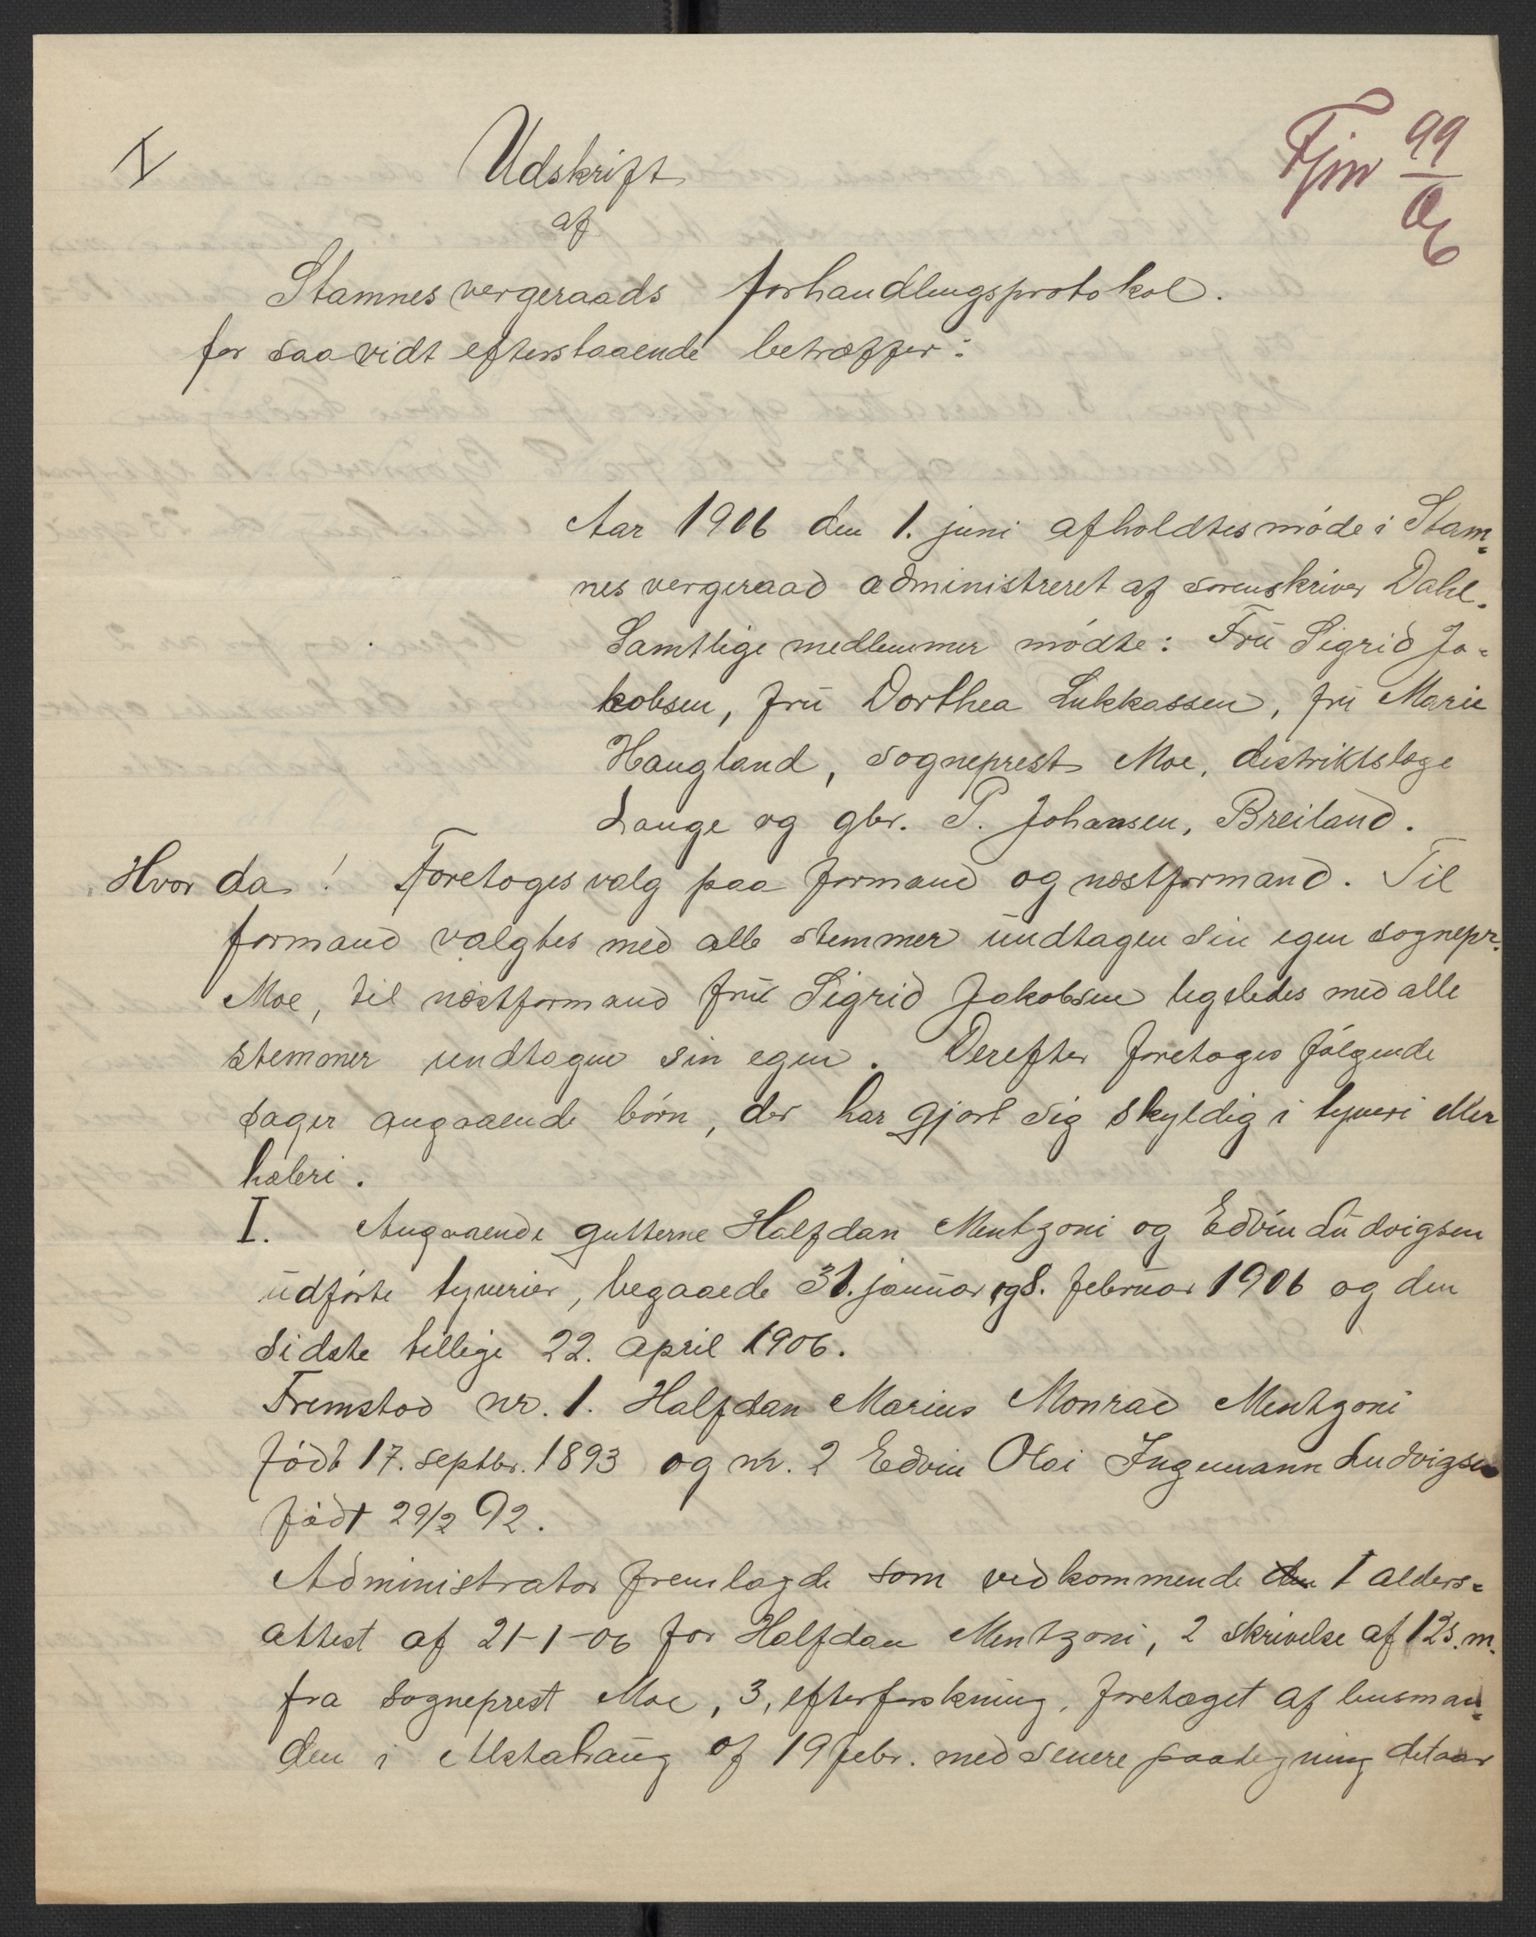 I
Udskrift
af
Fjm 99/06
Stamnes vergeraads forhandlingsprotokol.
for saavidt efterstaaende betræffer:
Aar 1906 den 1. juni afholdtes möde i Stam-
nes vergeraad administreret af sorenskriver Dahl.
Samtlige medlemmer mödte: Frü Sigrid Ja-
kobsen, frü Dorthea Lukkassen, frü Marie
Haugland, sogneprest Moe, distriktslæge
Lange og gbr. P. Johansen, Breiland.
Hvor da! Foretoges valg paa formand og næstformand. Til
formand valgtes med alle stemmer ündtagen sin egen sognepr.
Moe, til næstformand frü Sigrid Jakobsen ligeledes med alle
stemmer undtagen sin egen. Derefter foretoges fölgende
sager angaaende börn, der har gjort sig skyldig i tyveri eller
hæleri.
I. Angaaende gutterne Halfdan Mentzoni og Edvin Lüdvigsen
üdförte tyverier, begaaede 31. janüar og 8. februar 1906 og den
sidste tillige 22. april 1906.
Fremstod nr. 1. Halfdan Marius Monrad Mentzoni
födt 17. septbr. 1893 og nr. 2 Edvin Olai Ingemann Ludvigsen
födt 29/2 92.
Administrator fremlagde som vedkommende den 1 alders-
attest af 21-1-06 for Halfdan Mentzoni, 2 skrivelse af 12 s. m.
fra sogneprest Moe, 3, efterforskning, foretaget af lensman-
den i Alstahaüg af 19 febr. med senere paategning